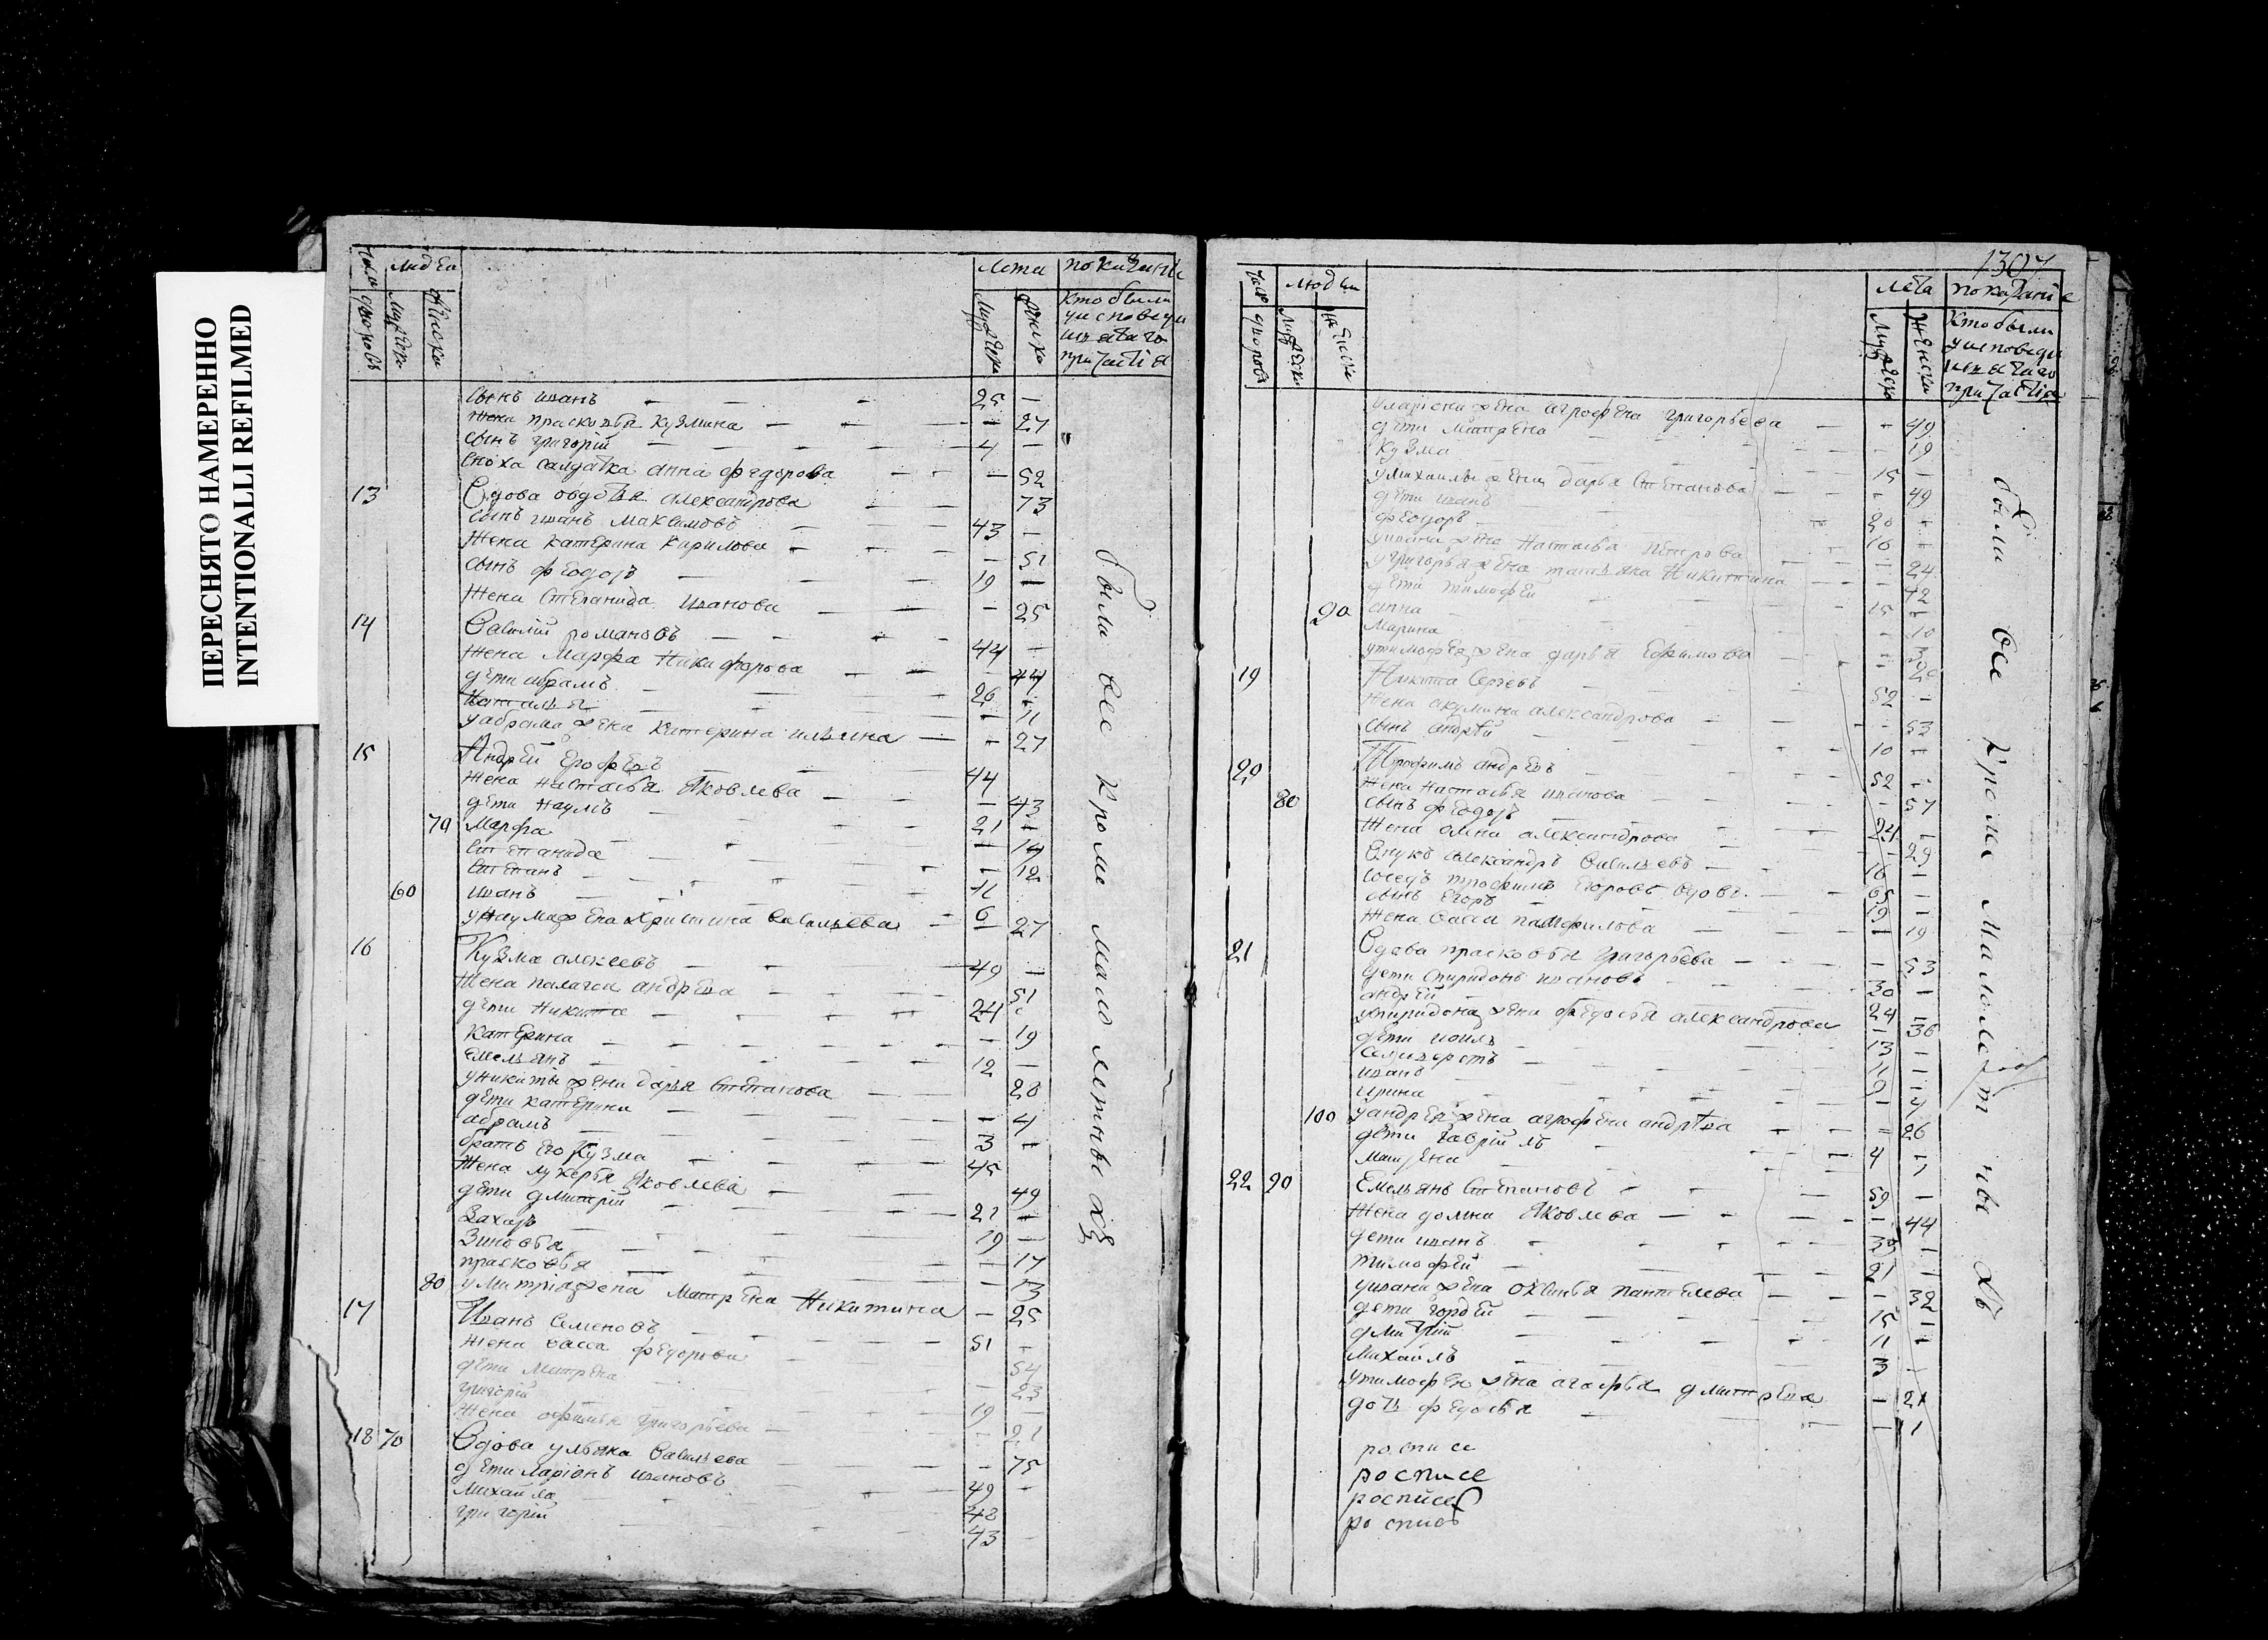 ПЕРЕСНЯТО НАМЕРЕННО
INTENTIONALLI REFILMED
людеи
лета показание
кто были
у исповеди
и святаго
причастия
сынъ иванъ 25 —
жена прасковья кузмина — 27
сынъ григорій 4 —
сноха салдатка анна федорова — 52
13 Вдова овдотья александрова 73
сынъ иванъ максимовъ 43 —
жена катерина кирилова — 51
сынъ феодоръ 19 —
жена степанида иванова — 25
14 Василій романовъ 44 —
жена марфа никифорова — 44
дети абрамъ 26 —
наталья — 11
у абрама жена катерина ильина — 27
15 Андрей ерофеевъ 44
жена настасья яковлева — 43
дети наумъ 21 —
70 марфа — 14
степанида — 12
степанъ 11
60 иванъ 6
у наума жена христина васильева — 27
16 Кузма алексеевъ 49 —
жена палагея андреева 51
дети никита 24
катерина — 19
емельянъ 12 —
у никиты жена дарья степанова 28
дети катерина — 4
абрамъ 3 —
братъ его кузма 45
жена лукерья яковлева 49
дети дмитрій 21 —
захаръ 19 —
зиновья — 17
прасковья — 13
80 у митрія жена матрена никитина — 25
17 Иванъ семеновъ 51 —
жена васса федорова 54
дети матрена — 23
григорій 19 —
жена офимья григорьева — 21
18 70 Вдова ульяна васильева — 75
дети ларіонъ ивановъ 49 —
михайла 48
григорій 43
были все кроме мало летныхъ
1307
люди
лета показаніе
кто были
у исповеди
и святаго
причастія
у ларіона жена агрофена григорьева — 49
дети матрена — 19
кузма 15 —
у михаилы жена дарья степанова — 49
дети иванъ 20 —
феодоръ 16 —
у ивана жена настасья петрова — 24
у григорья жена татьяна никитина — 42
дети тимофей 15 —
90 анна — 10
марина
у тимофея жена дарья ефимова
19 Никита сергеевъ 52 —
жена акулина александрова — 53
сынъ андрей 10 —
20 Трофимъ андреевъ 52 —
жена настасья иванова — 57
80 сынъ феодоръ 24 —
жена анна александрова — 29
внукъ александръ васильевъ 16 —
соседъ трофимъ егоровъ вдовъ 65 —
сынъ егоръ 19 —
жена васса памфилова — 19
21 Вдова прасковья григорьева — 53
дети спиридонъ ивановъ 30 —
андрей 24 —
у спиридона жена федосья александрова — 36
дети 13 —
11 —
иванъ 9 —
ирина — 4
100 у андрея жена агрофена андреева — 26
дети гаврійлъ 4 —
матрена — 1
22 90 Емельянъ степановъ 59 —
жена домна яковлева — 44
дети иванъ —
тимофей 21 —
у ивана жена оксинья пантелева — 32
дети гордей 15 —
дмитрій 11 —
михайлъ 3 —
у тимофея жена агафья дмитреева — 21
дочь федосья — 1
росписе
росписе
росписе
роспись
были все кроме малолетныхъ